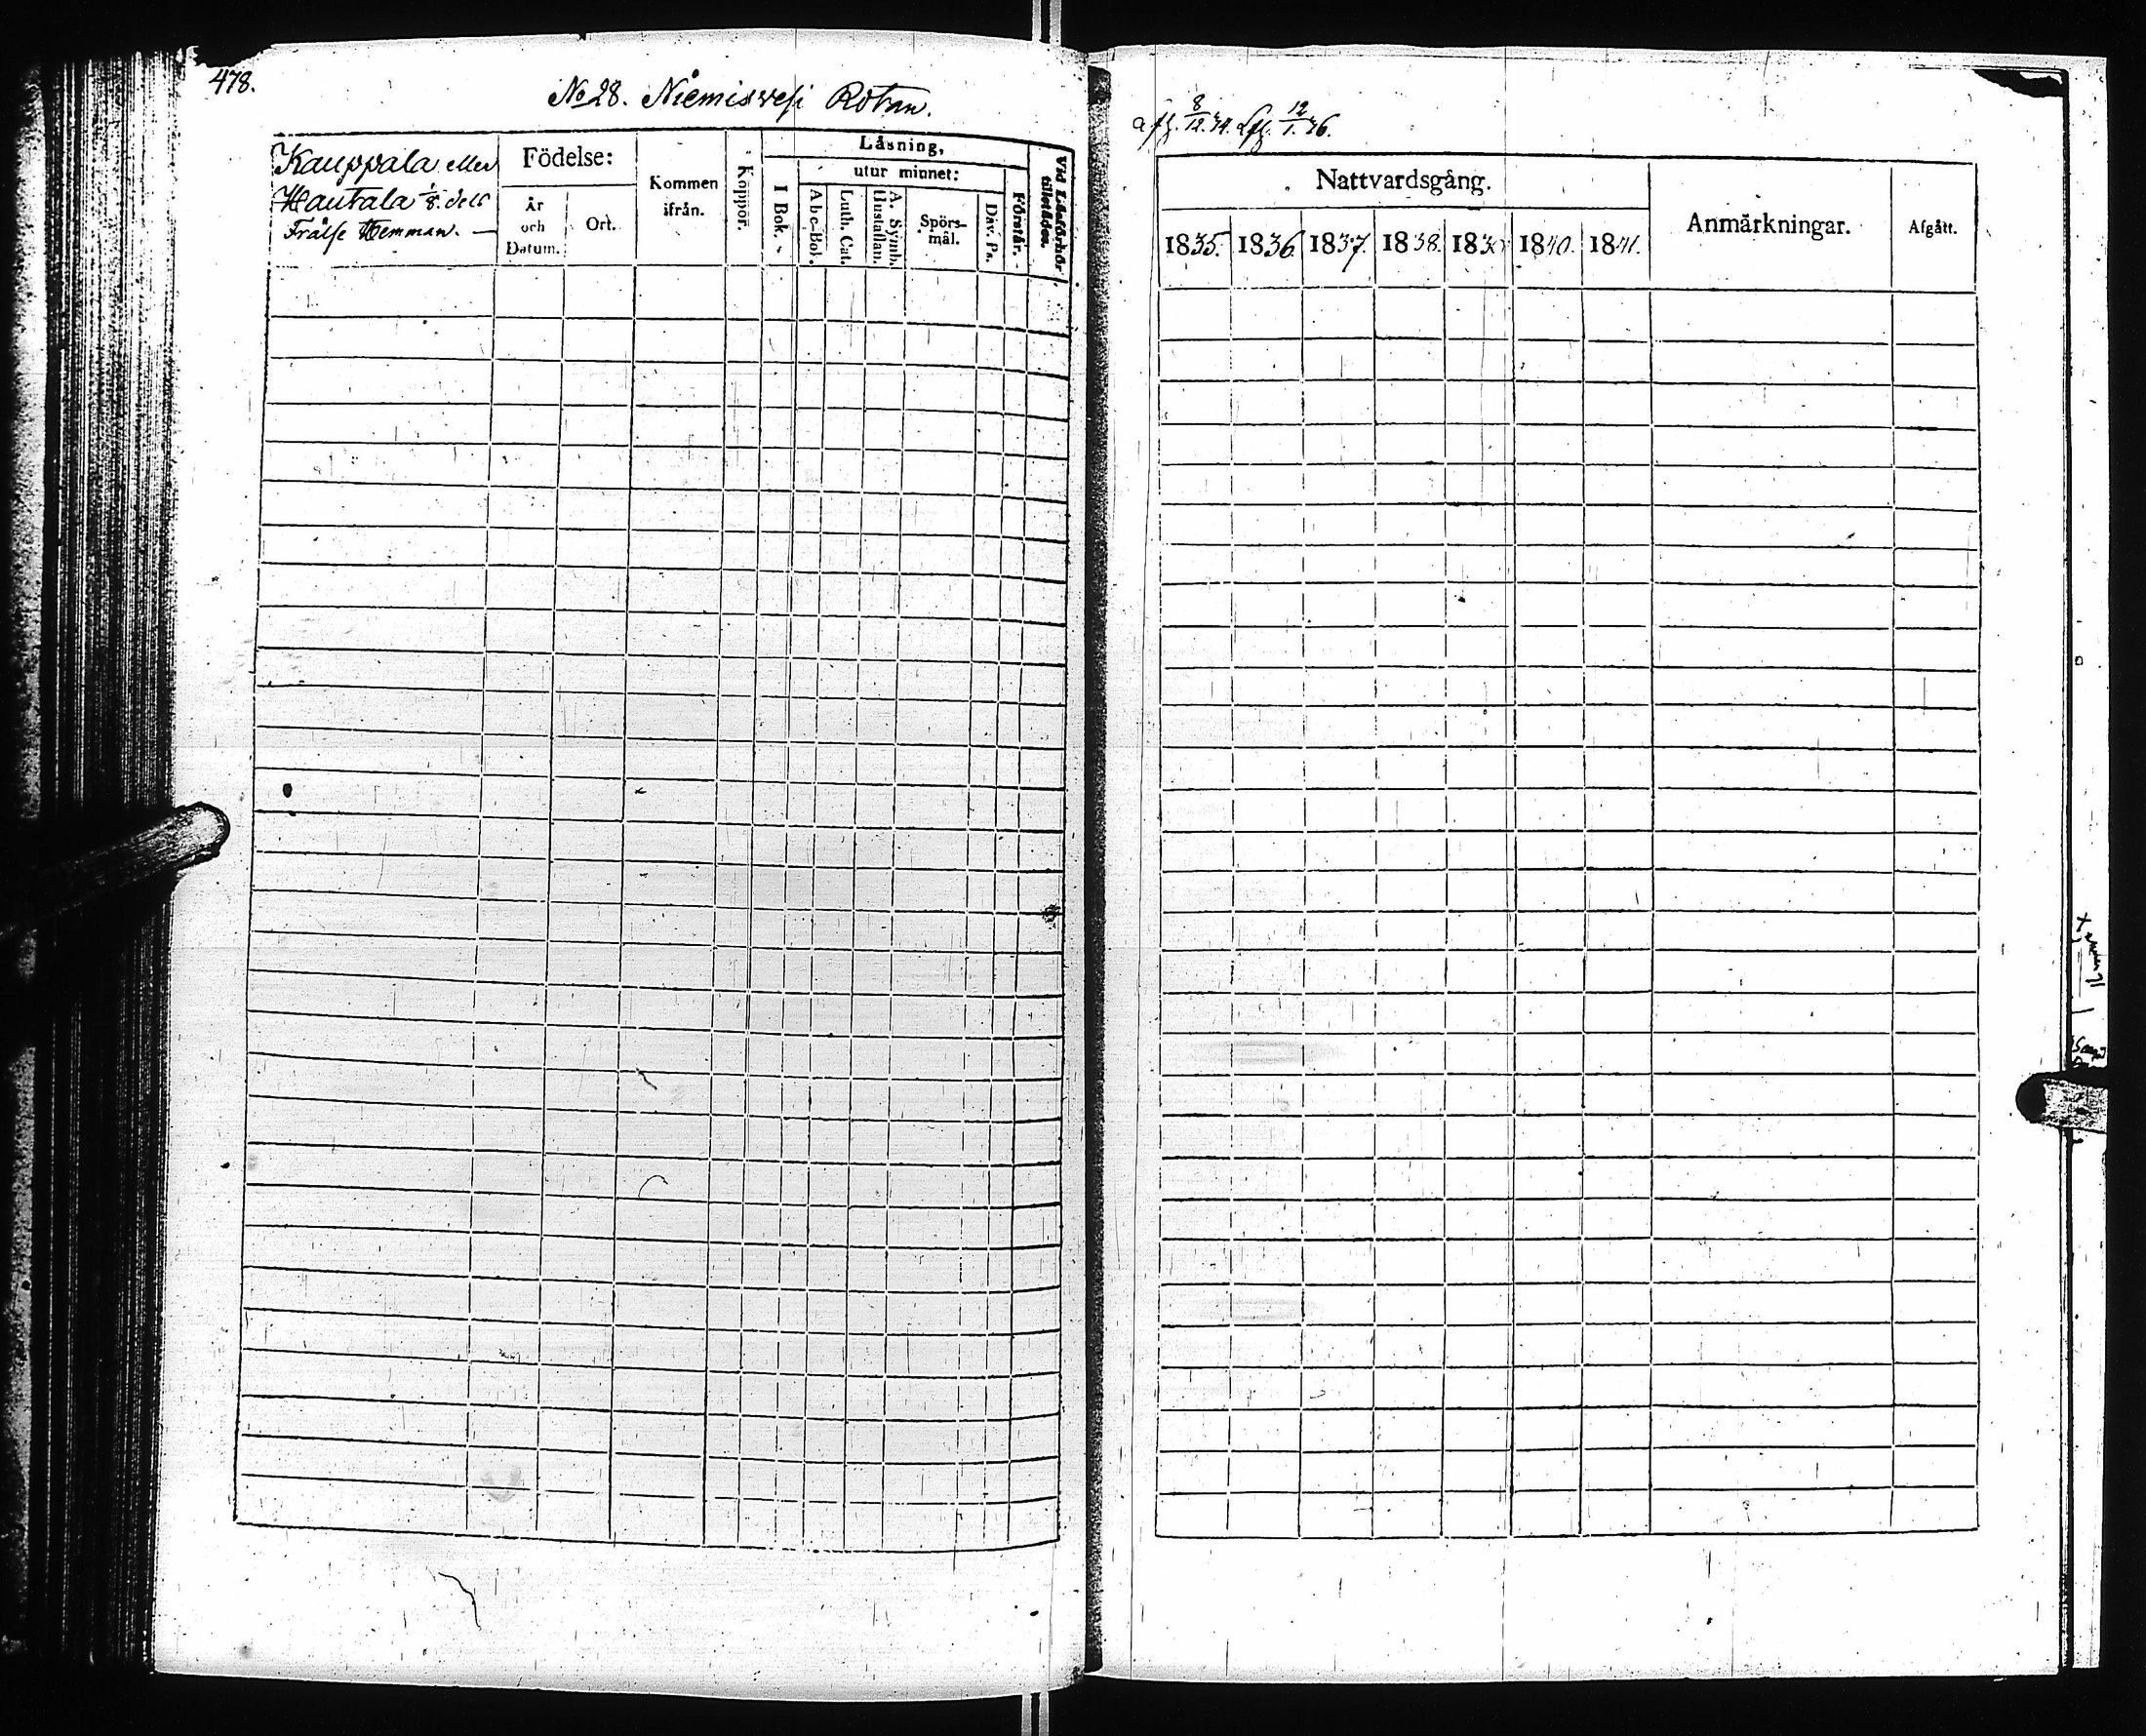 478.
No 28. Niemiswesi Rotan.
Kauppala eller
Hautala 1/8 dels
Frälse Hemman. —
Födelse:
År och Datum.
Ort.
Kommen ifrån.
Koppor.
Läsning,
I Bok.
utur minnet:
Abc-Bok.
Luth. Cat.
A. Symb. Hustaflan.
Spörs-mål.
Dav. Ps.
Förstår.
Vid Läsförhör tillstädes.
8/12. 12/1.
Nattvardsgång.
1835. 1836. 1837. 1838. 1839 1840. 1841.
Anmärkningar.
Afgått.